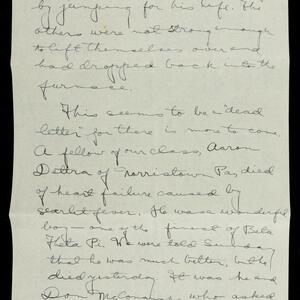 by jumping for his life. The
others were not strong enough
to lift themselves over and
had dropped back into the
furnace.
This seems to be a "dead
letter" for there is more to come.
A fellow of our class, Aaron
Dettra of Norristown Pa, died
of heart failure caused by
scarlet fever. He was a wonderful
boy - one of the finest of Beta
Theta Pi. We were told Sunday
that he was much better, but he
died yesterday. It was he and
Don who asked